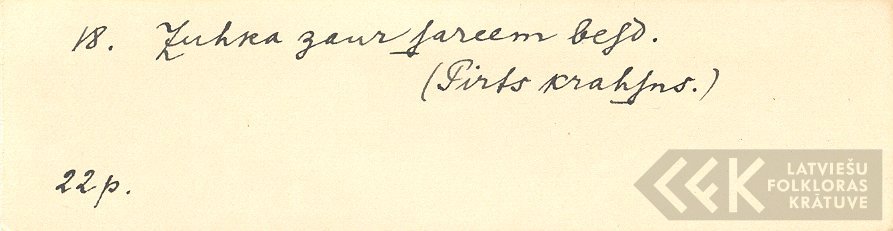 18. Zuhka zaur ſareem beſd.
(Pirts krahſns.)
22p.
LATVIEŠU
FOLKLORAS
KRĀTUVE